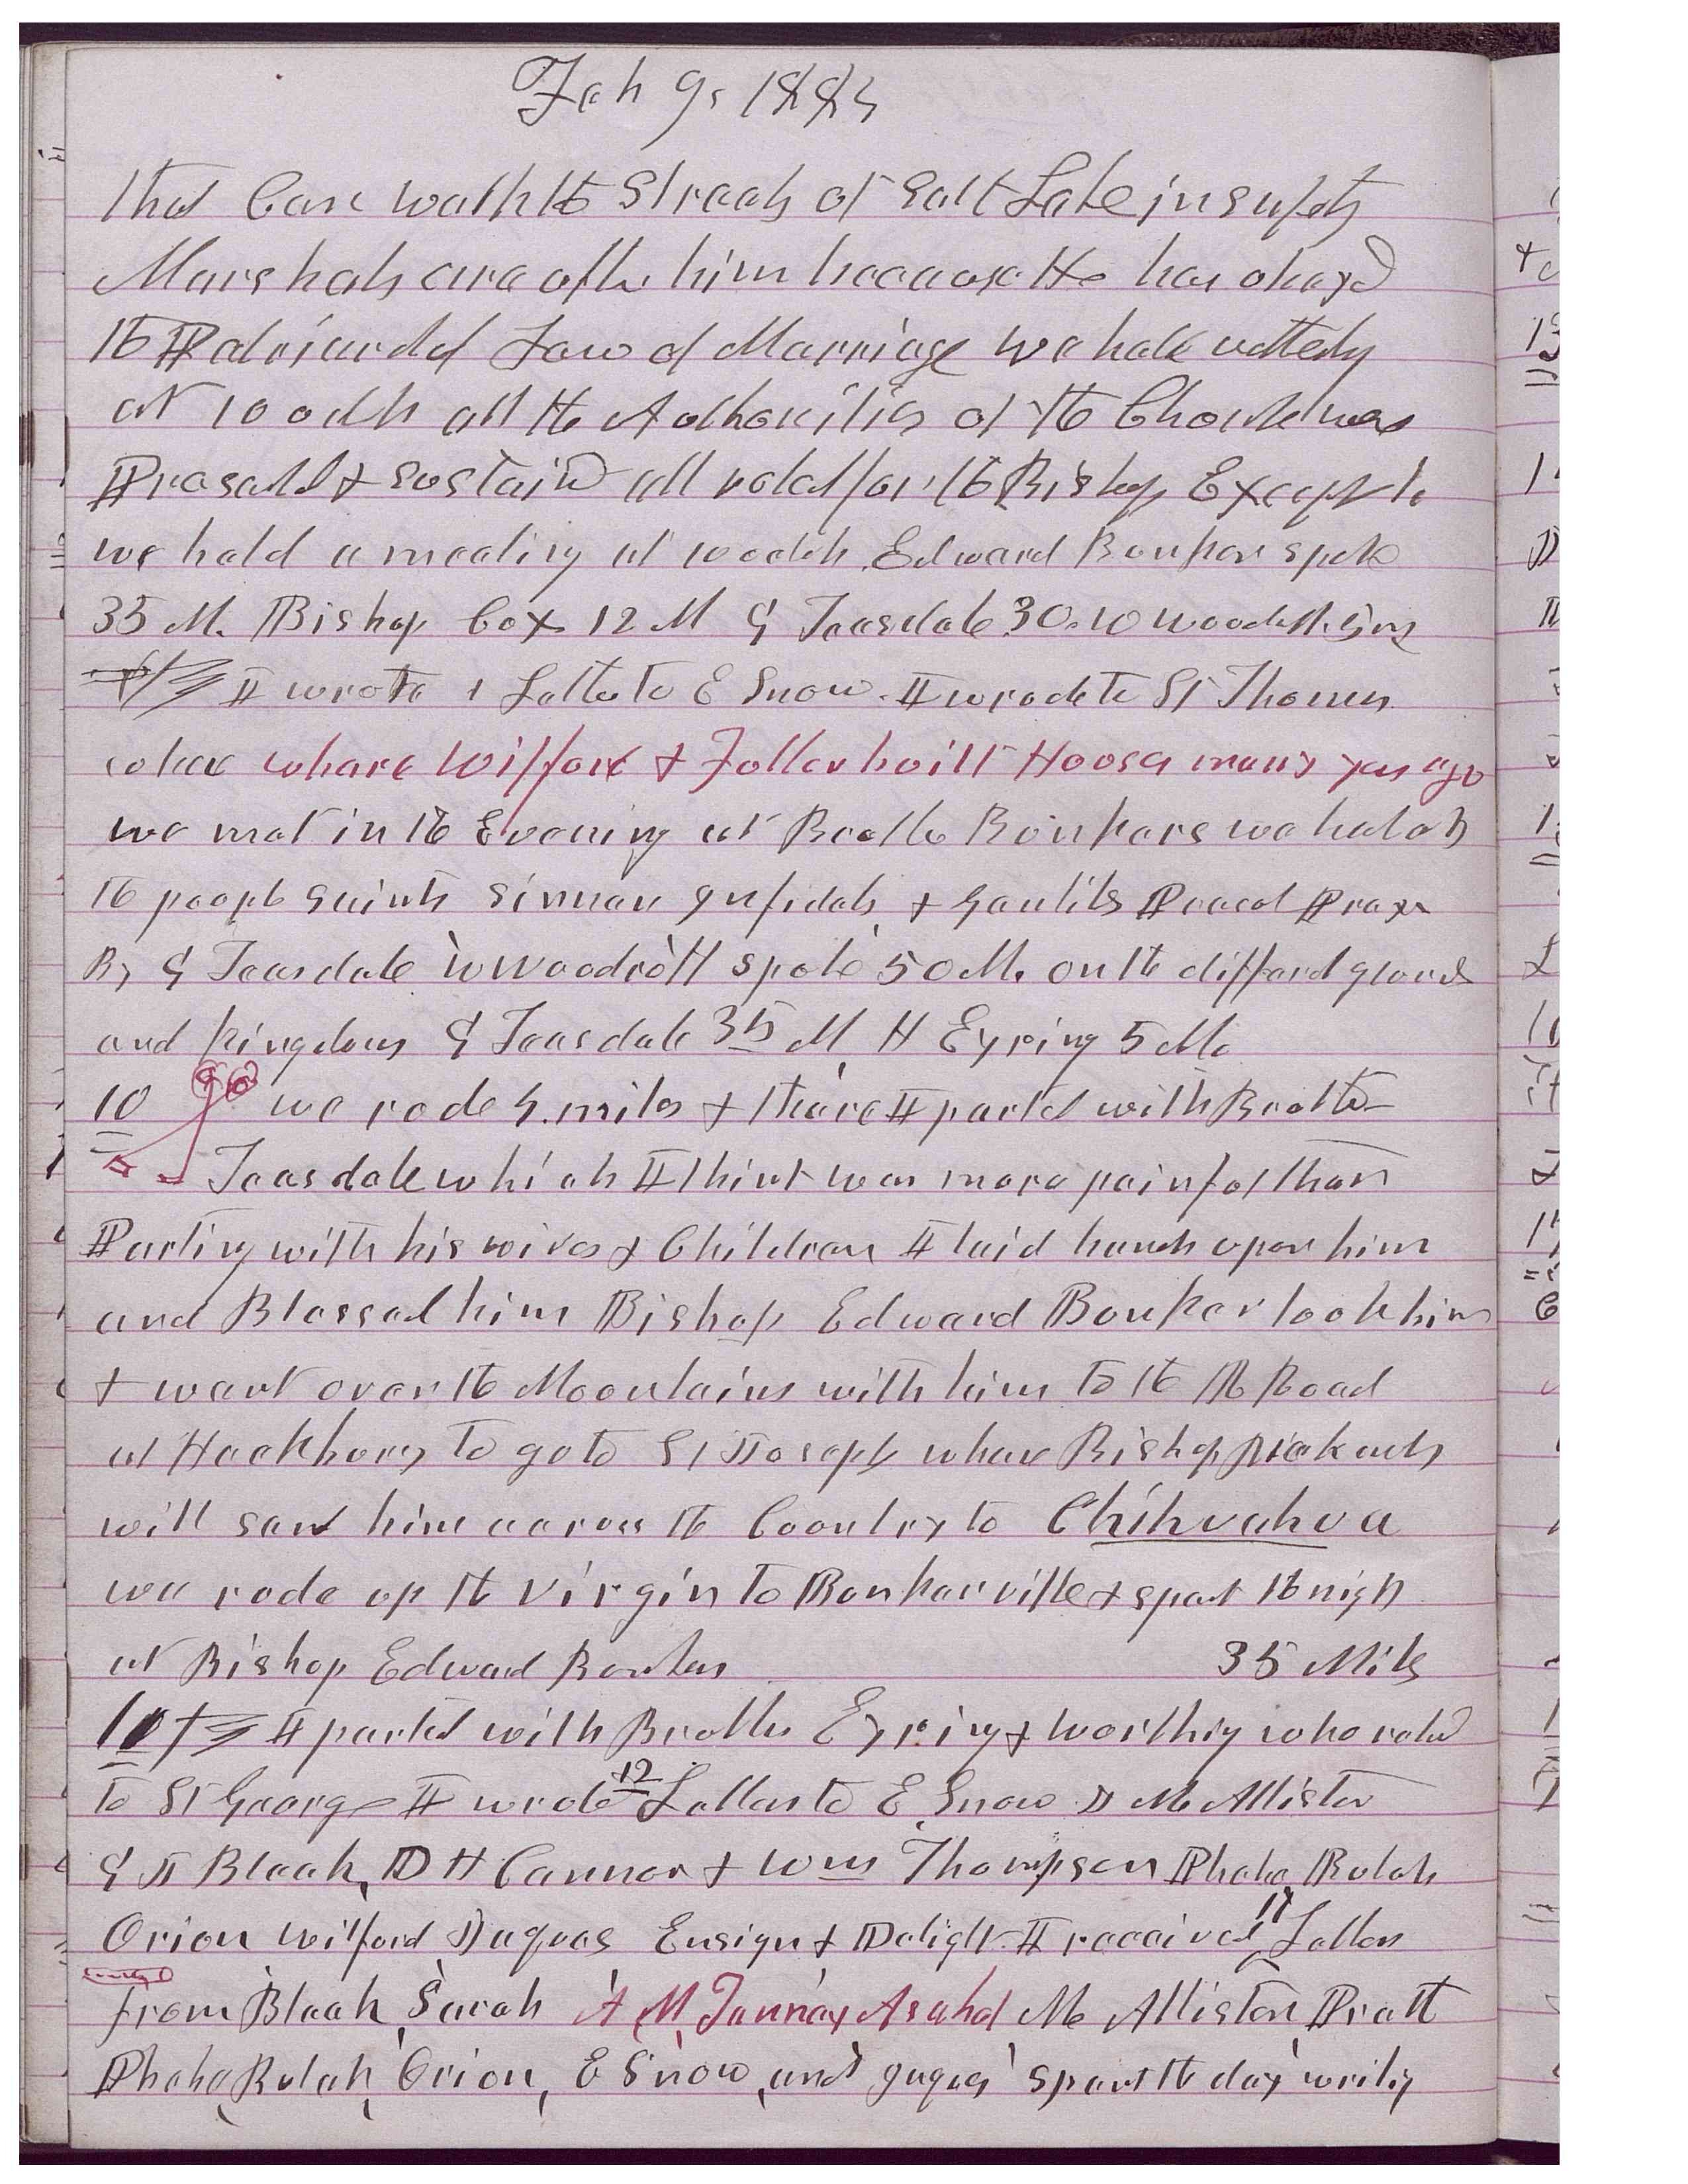 Feb 9, 1885
that can walk the Streets of Salt Lake in safety
Marshals are after him because He has obeyed
the Patriarchal Law of Marriage we held
at 10 oclk all the Authorities of the Church were
Presented & sustaind all voted for the Bishop Except 1.
we held a meeting at 10 oclok Edward Bunker spoke
35 M. Bishop Cox 12 M G Teasdale 30. W Woodruff
I wrote 1 Letter to E Snow. I wrode to St Thomas
where whare Wilford & Foller built House many years ago
we met in the Evening at Brother Bunkers we had all
the people Saints Sinners Infidels & Gentiles Preced Prayer
By G Teasdale W Woodruff spoke 50 M. on the different glories
and kingdoms G Teasdale 35 M, H Eyring 5 M.
10 we rode 4. miles & thare I parted with Brother
Teasdale which I think was more painful than
Parting with his wives & Children I laid hands upon him
and Blessed him Bishop Edward Bunker took him
& went over the Mountains with him to the R Road
at Hackbury to go to St Joseph whare Bishop
will send him across the Country to Chihuahua
we rode up the Virgin to Bunkerville & spent the night
at Bishop Edward Bunkers 35 Miles
11 I parted with Brother Eyring & Worthing who rode
to St George I wrote 12 Letters to E Snow D McAllister
& J Bleak, D H Cannon & Wm Thompson Phebe, Bulah
Orion Wilford Jaques Ensign & Delight. I received 11 Letters
from Bleak, Sarah A M, Tenney Asahel McAllister Pratt
Phebe, Bulah, Orion, E Snow, and Jaques spent the day writing